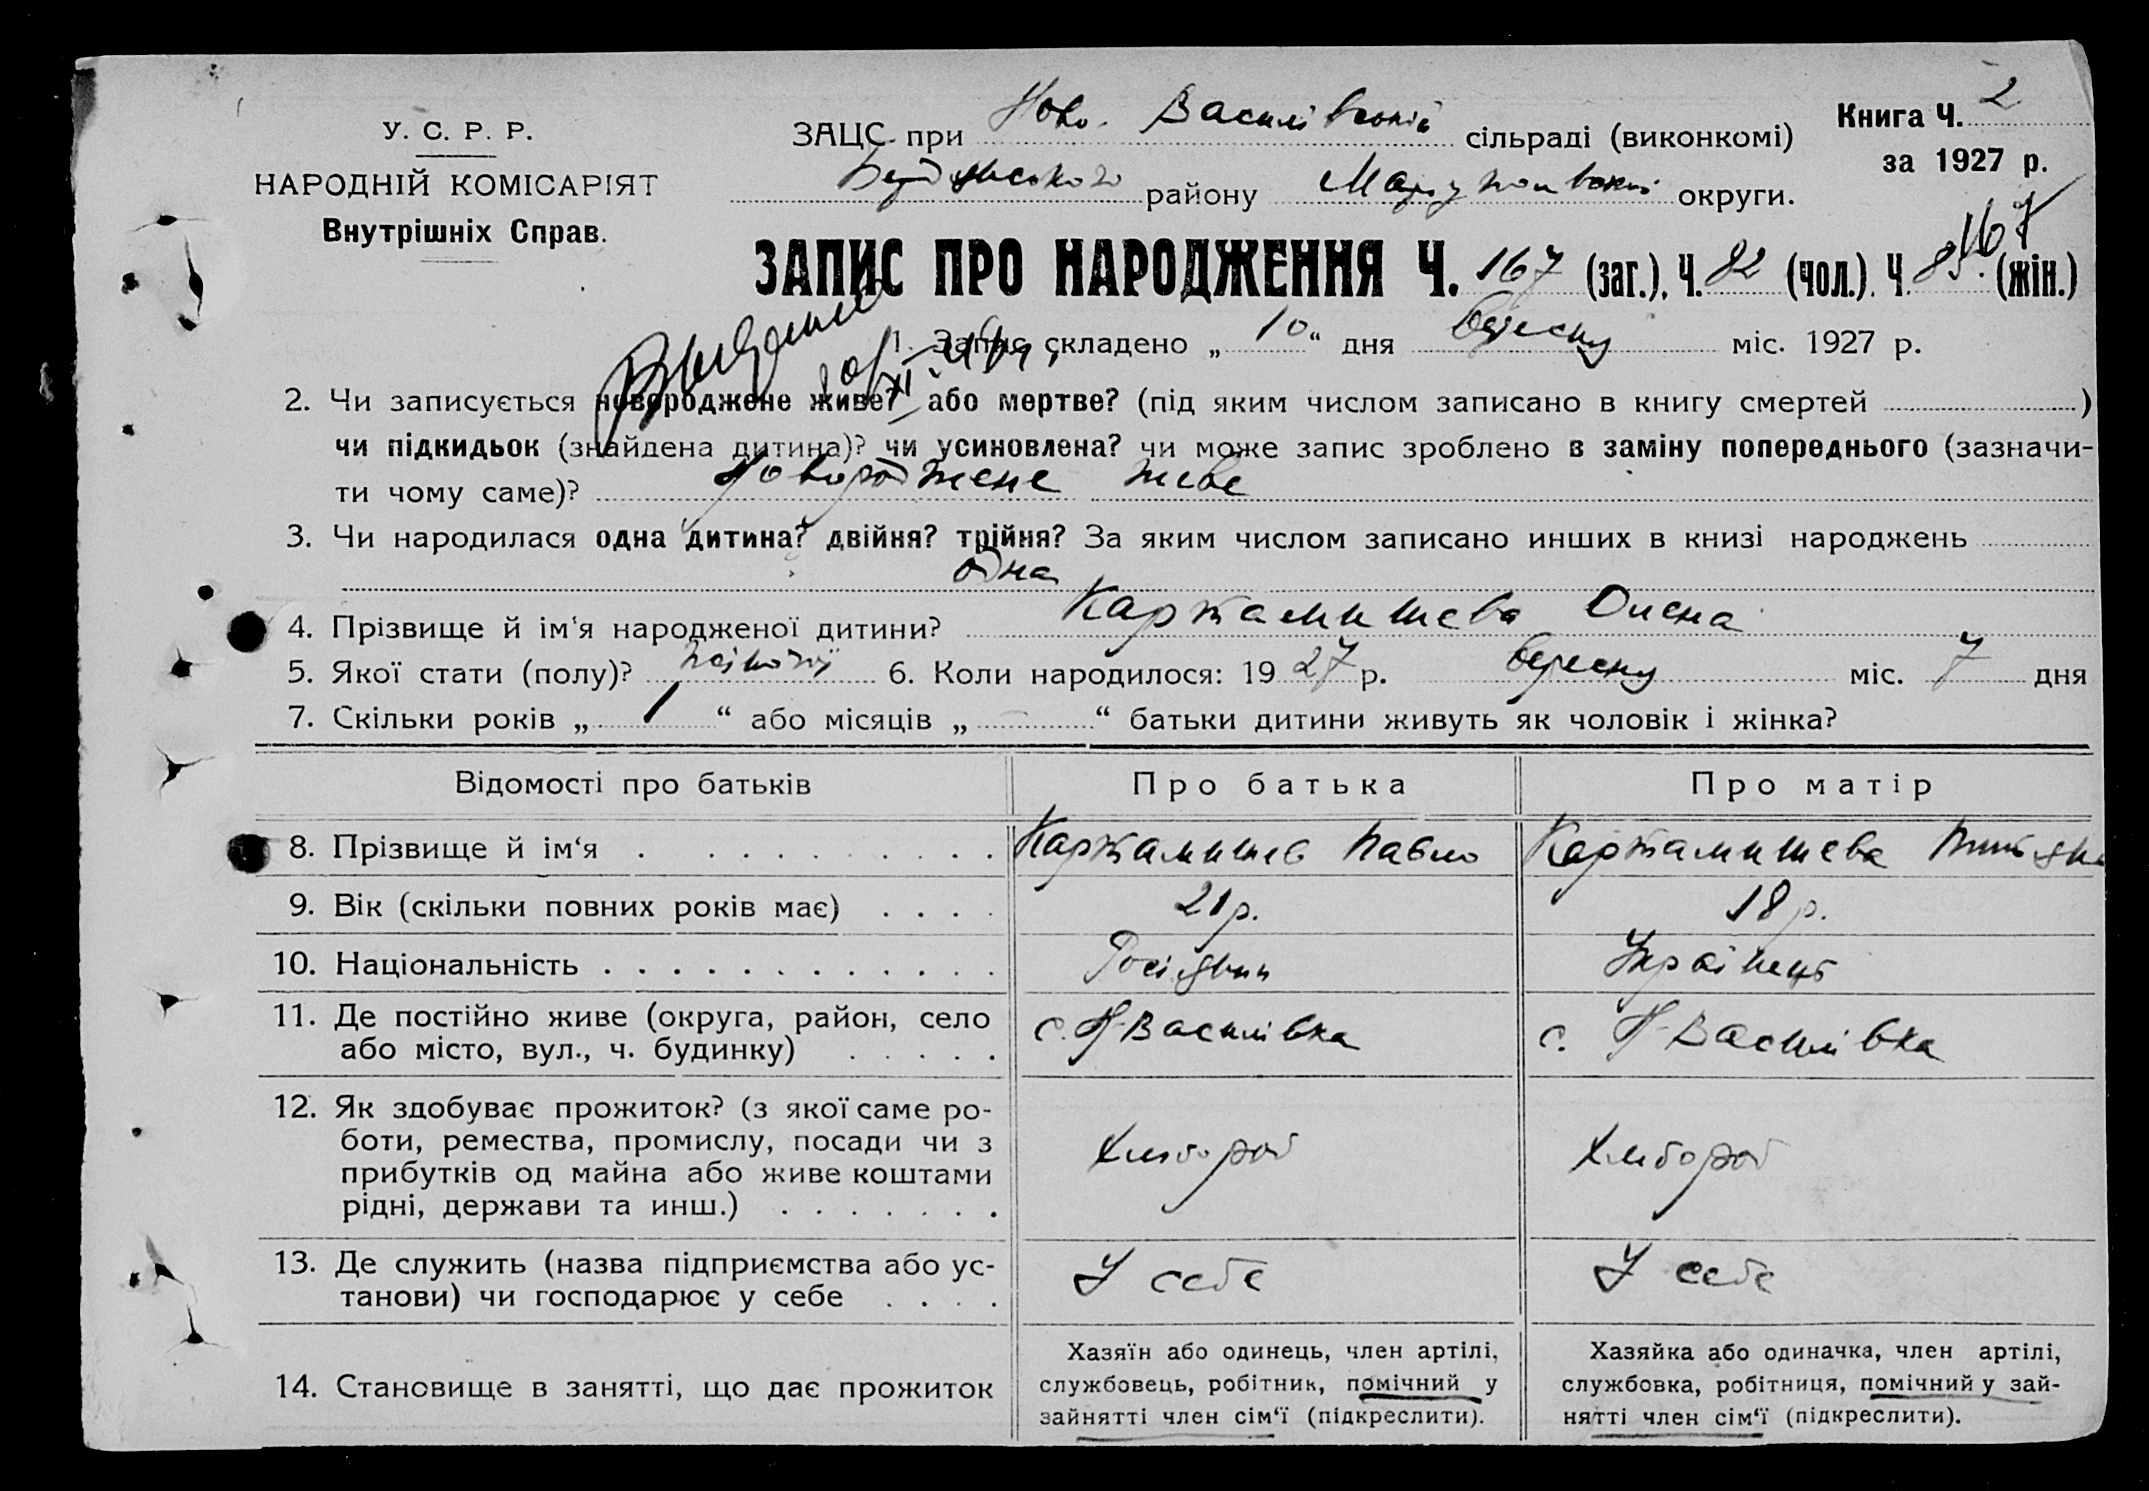 У. С. Р. Р.
НАРОДНІЙ КОМІСАРІЯТ
Внутрішніх Справ.
ЗАЦС при Ново. Василівській сільраді (виконкомі)
Бердянського району Маріупольської округи.
Книга Ч. 2
за 1927 р.
167
ЗАПИС ПРО НАРОДЖЕННЯ Ч. 167 (заг.), Ч. 82 (чол.), Ч. 85. (жін.)
1. Запис складено „ 10 “ дня вересня міс. 1927 р.
2. Чи записується новороджене живе? або мертве? (під яким числом записано в книгу смертей )
чи підкидьок (знайдена дитина)? чи усиновлена? чи може запис зроблено в заміну попереднього (зазначи-
ти чому саме)? Новороджене живе
3. Чи народилася одна дитина? двійня? трійня? За яким числом записано инших в книзі народжень
одна
4. Прізвище й ім'я народженої дитини? Каржамишева Олена
5. Якої стати (полу)? жіночої 6. Коли народилося: 19 27 р. вересня міс. 7 дня
7. Скільки років „ 1 “ або місяців „ – “ батьки дитини живуть як чоловік і жінка?
Відомості про батьків Про батька Про матір
8. Прізвище й ім'я Каржамишев Павло Каржамишева
9. Вік (скільки повних років має) 21 р. 18 р.
10. Національність Росіянин Українець
11. Де постійно живе (округа, район, село
або місто, вул., ч. будинку) с. Н-Василівка с. Н-Василівка
12. Як здобуває прожиток? (з якої саме ро-
боти, ремества, промислу, посади чи з
прибутків од майна або живе коштами
рідні, держави та инш.) Хлібороб Хлібороб
13. Де служить (назва підприємства або ус-
танови) чи господарює у себе У себе У себе
14. Становище в занятті, що дає прожиток
Хазяїн або одинець, член артілі,
службовець, робітник, помічний у
зайнятті член сім'ї (підкреслити).
Хазяйка або одиначка, член артілі,
службовка, робітниця, помічний у зай-
нятті член сім'ї (підкреслити).